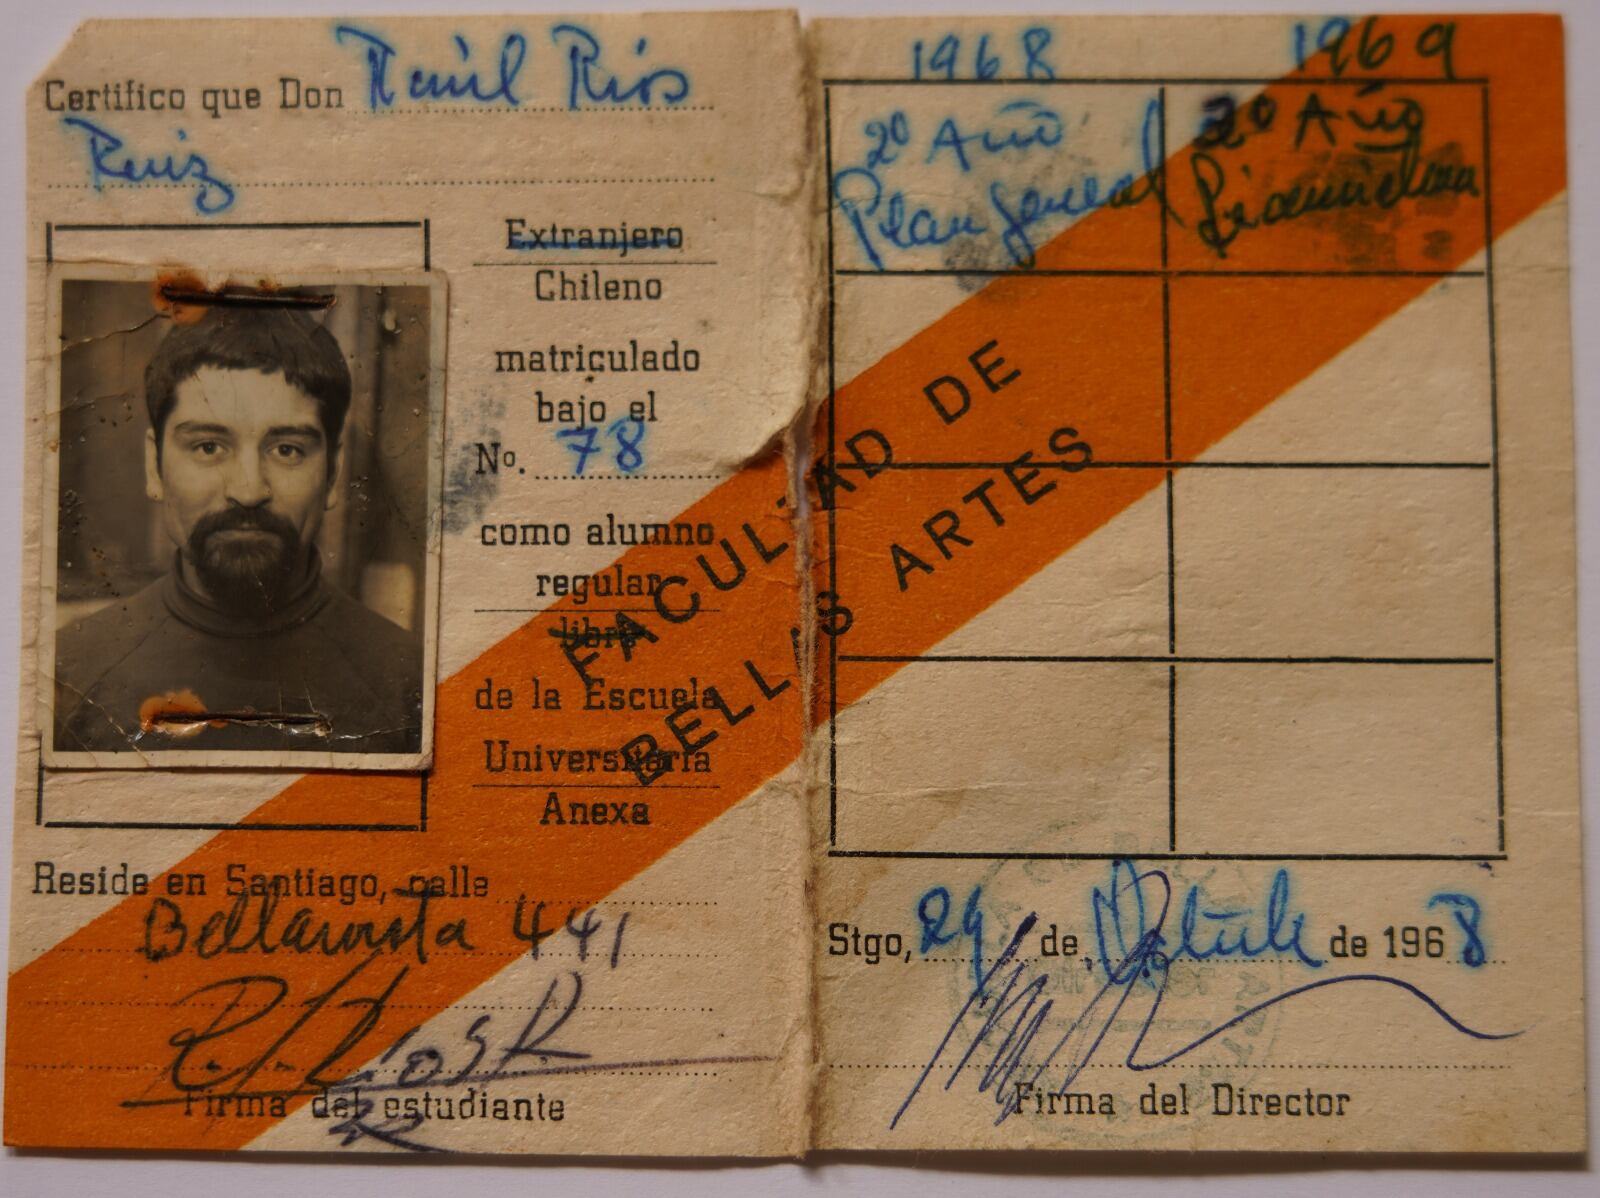 Certifico que Don Raúl Ríos
Ruiz
Extranjero
Chileno
matriculado
bajo el
No. 78
como alumno
regular
libre
de la Escuela
Universitaria
Anexa
Reside en Santiago, calle
Bellavista 441
R. Ríos R.
Firma del estudiante
FACULTAD DE
BELLAS ARTES
1968 1969
2º Año 2º Año
Plan General
Stgo, 29 de Octubre de 1968
Firma del Director